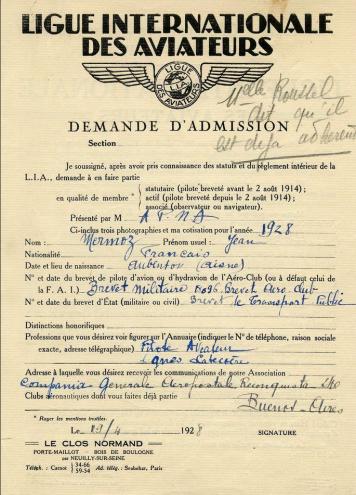 LIGUE INTERNATIONALE
DES AVIATEURS
LIGUE
L.I.A.
DES AVIATEURS
Melle Roussel
dit qu'il
est déjà adhérent
DEMANDE D'ADMISSION
Section
Je soussigné, après avoir pris connaissance des statuts et du règlement intérieur de la
L.I.A., demande à en faire partie
statutaire (pilote breveté avant le 2 août 1914) ;
en qualité de membre * actif (pilote breveté depuis le 2 août 1914) ;
associé (observateur ou navigateur).
Présenté par M A.P.N.A
Ci-inclus trois photographies et ma cotisation pour l'année 1928
Nom : Mermoz Prénom usuel : Jean
Nationalité Français
Date et lieu de naissance Aubenton (Aisne)
N° et date du brevet de pilote d'avion ou d'hydravion de l'Aéro-Club (ou à défaut celui de
la F. A. I.) Brevet Militaire 6096. Brevet Aéro-Club
N° et date du brevet d'État (militaire ou civil) Brevet de Transport Public
Distinctions honorifiques
Professions que vous désirez voir figurer sur l'Annuaire (indiquer le N° de téléphone, raison sociale
exacte, adresse télégraphique) Pilote Aviateur
Lignes Latécoère
Adresse à laquelle vous désirez recevoir les communications de notre Association
Compania Generale Aeropostale Reconquista 240
Clubs aéronautiques dont vous faites déjà partie
Buenos-Aires
* Rayer les mentions inutiles.
Le 19/4 1928 SIGNATURE
LE CLOS NORMAND
PORTE-MAILLOT - BOIS DE BOULOGNE
par NEUILLY-SUR-SEINE
Téléph. : Carnot 34-66
59-34 Ad. télég. : Seubehar, Paris